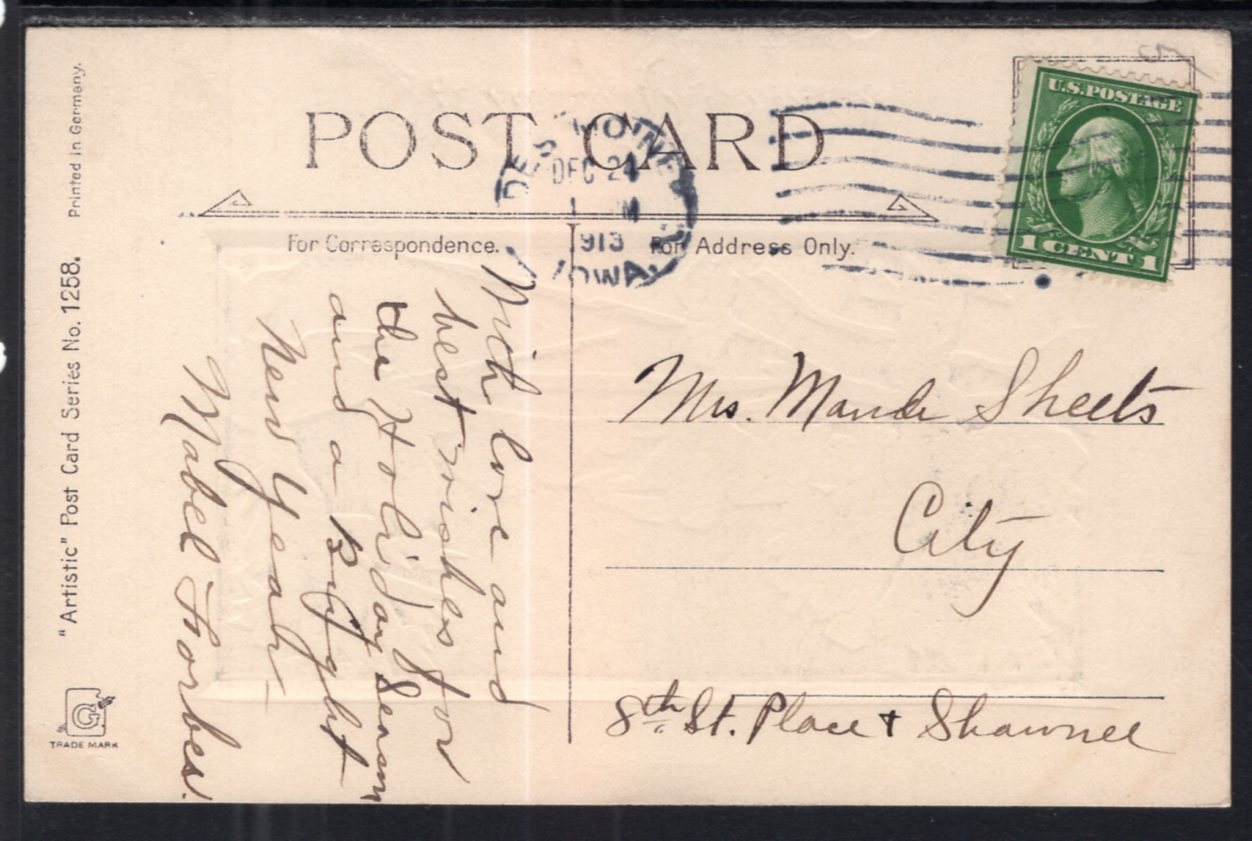 POST CARD
DES MOINES
DEC 24
1 M
1913
IOWA
U.S. POSTAGE
1 CENT 1
For Correspondence.
For Address Only.
With love and
best wishes for
the Holiday Season
and a Bright
New Year—
Mabel Forbes.
Mrs. Maude Sheets
City
8th St. Place + Shawnee
"Artistic" Post Card Series No. 1258.
Printed in Germany.
G
TRADE MARK